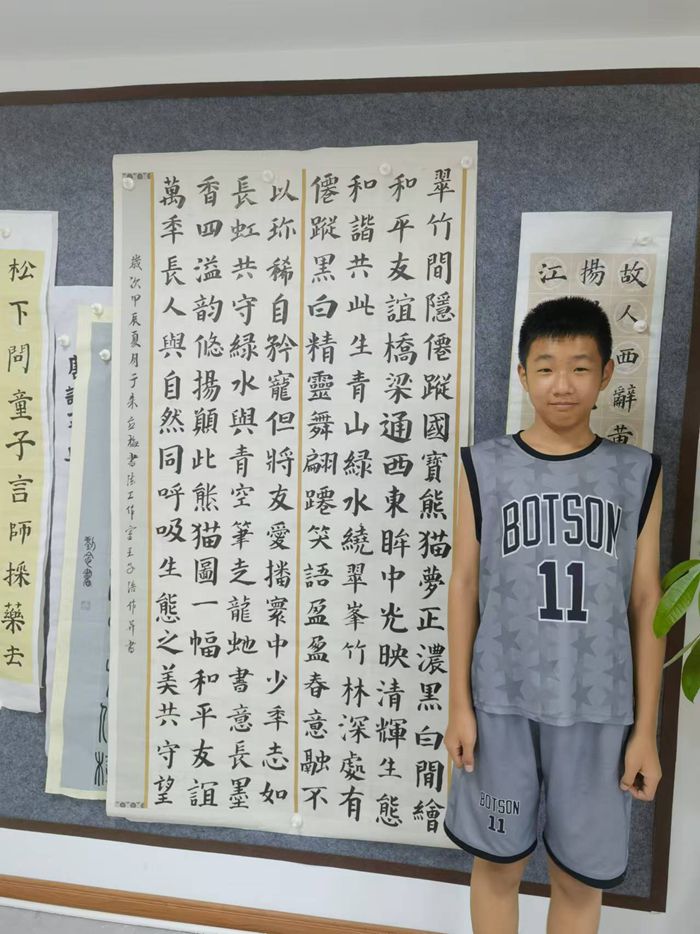 故人西辭黃
揚
江
翠竹間隱僊蹤國寶熊猫夢正濃黑白間繪
和平友誼橋梁通西東眸中光映清輝生態
和諧共此生青山綠水繞翠峯竹林深處有
僊蹤黑白精靈舞翩躚笑語盈盈春意融不
以珎稀自矜寵但將友愛播寰中少季志如
長虹共守綠水與青空筆走龍虵書意長墨
香四溢韵悠揚顚此熊猫圖一幅和平友誼
萬季長人與自然同呼吸生態之美共守望
歲次甲辰夏月于朱書法工作室王子浩作并書
唐詩
松下問童子言師採藥去
BOTSON
11
BOTSON
11